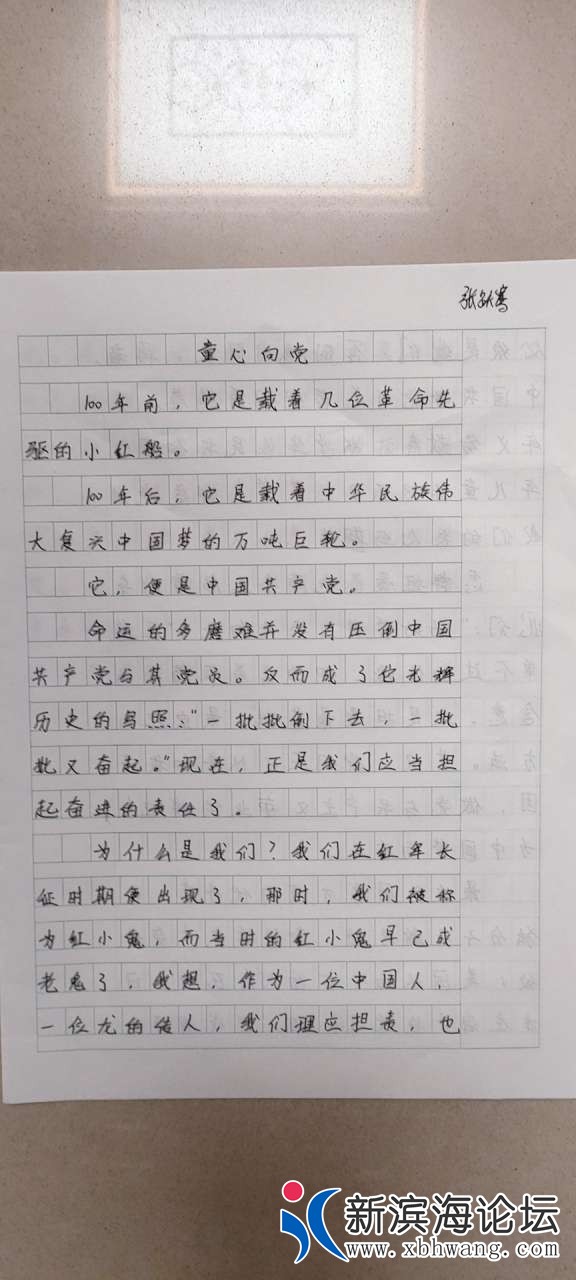 童心向党
100年前，它是载着几位革命先
驱的小红船。
100年后，它是载着中华民族伟
大复兴中国梦的万吨巨轮。
它，便是中国共产党。
命运的多磨难并没有压倒中国
共产党与其党员。反而成了它光辉
历史的写照：“一批批倒下去，一批
批又奋起。”现在，正是我们应当担
起奋进的责任了。
为什么是我们？我们在红军长
征时期便出现了，那时，我们被称
为红小鬼，而当时的红小鬼早已成
老鬼了，我想，作为一位中国人，
一位龙的传人，我们理应担责，也
新滨海论坛
www.xbhwang.com